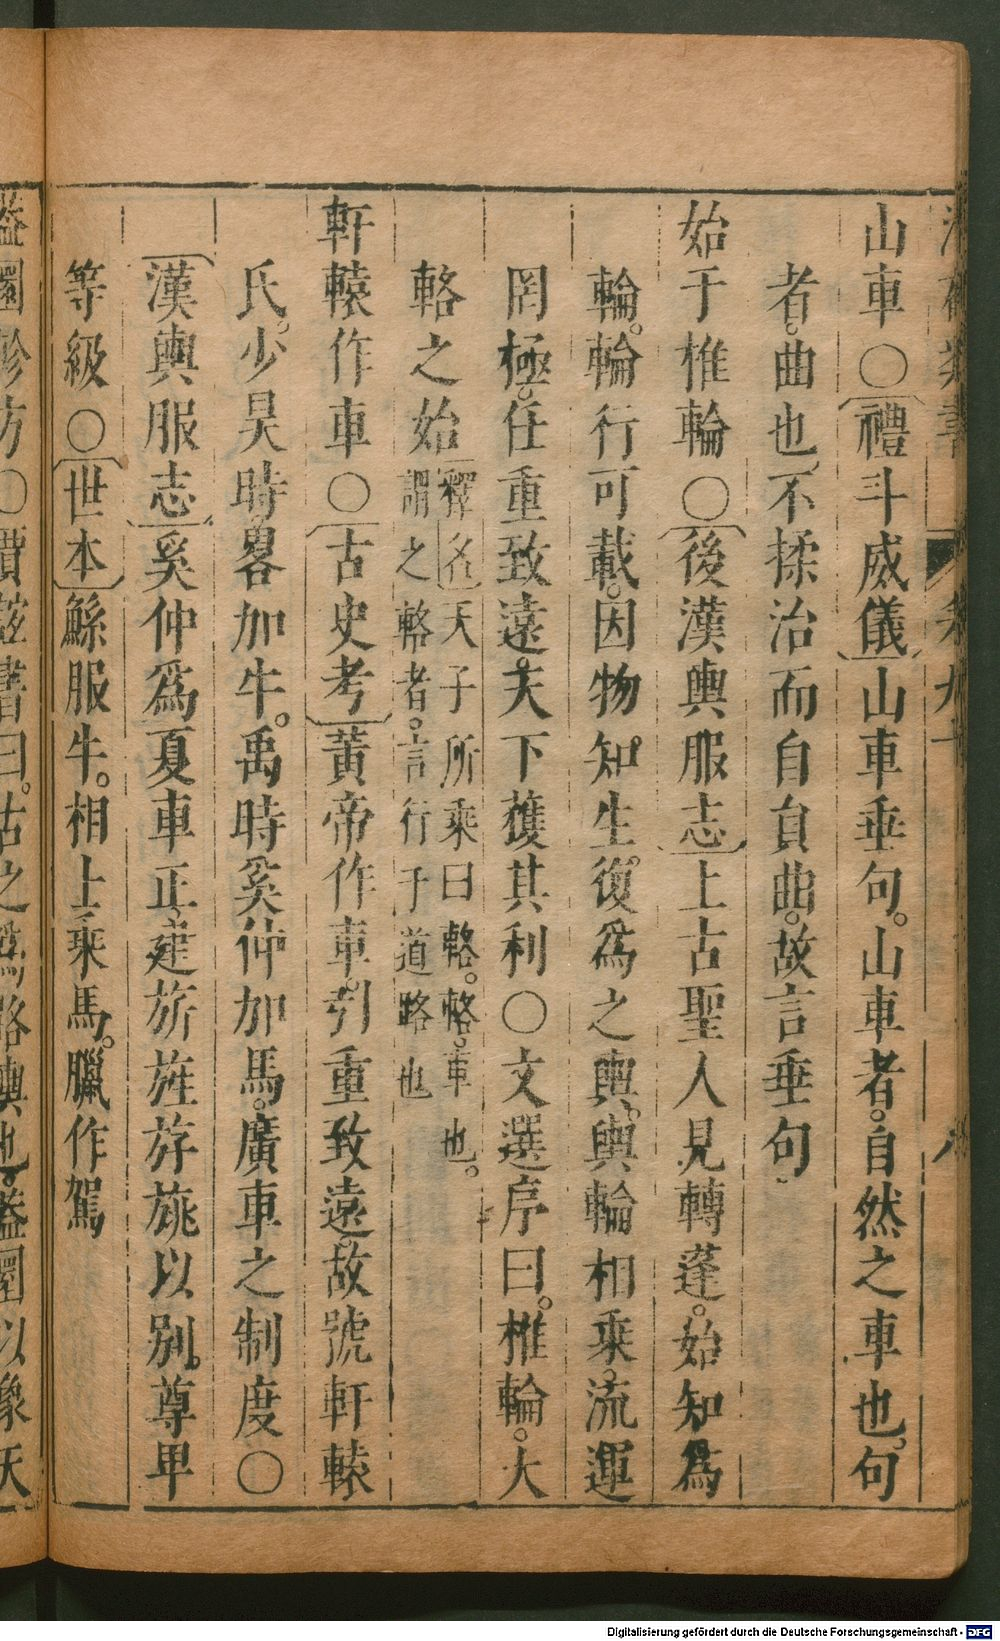 山車○禮斗威儀山車垂句。山車者。自然之車也。句
者。曲也、不揉治而自員曲。故言垂句
始于椎輪○後漢輿服志上古聖人見轉蓬。始知為
輪。輪行可載。因物知生。復為之輿。輿輪相乘。流運
罔極。任重致遠。天下獲其利○文選序曰。椎輪。大
輅之始釋名天子所乘曰輅。輅。車也。
謂之輅者。言行于道路也
軒轅作車○古史考黃帝作車。引重致遠。故號軒轅
氏。少昊時畧加牛。禹時奚仲加馬。廣車之制度○
漢輿服志奚仲爲夏車正。建旂旌斿旐以别。尊卑
等級○世本鯀服牛。相土乘馬。臘作駕
Digitalisierung gefördert durch die Deutsche Forschungsgemeinschaft - DFG